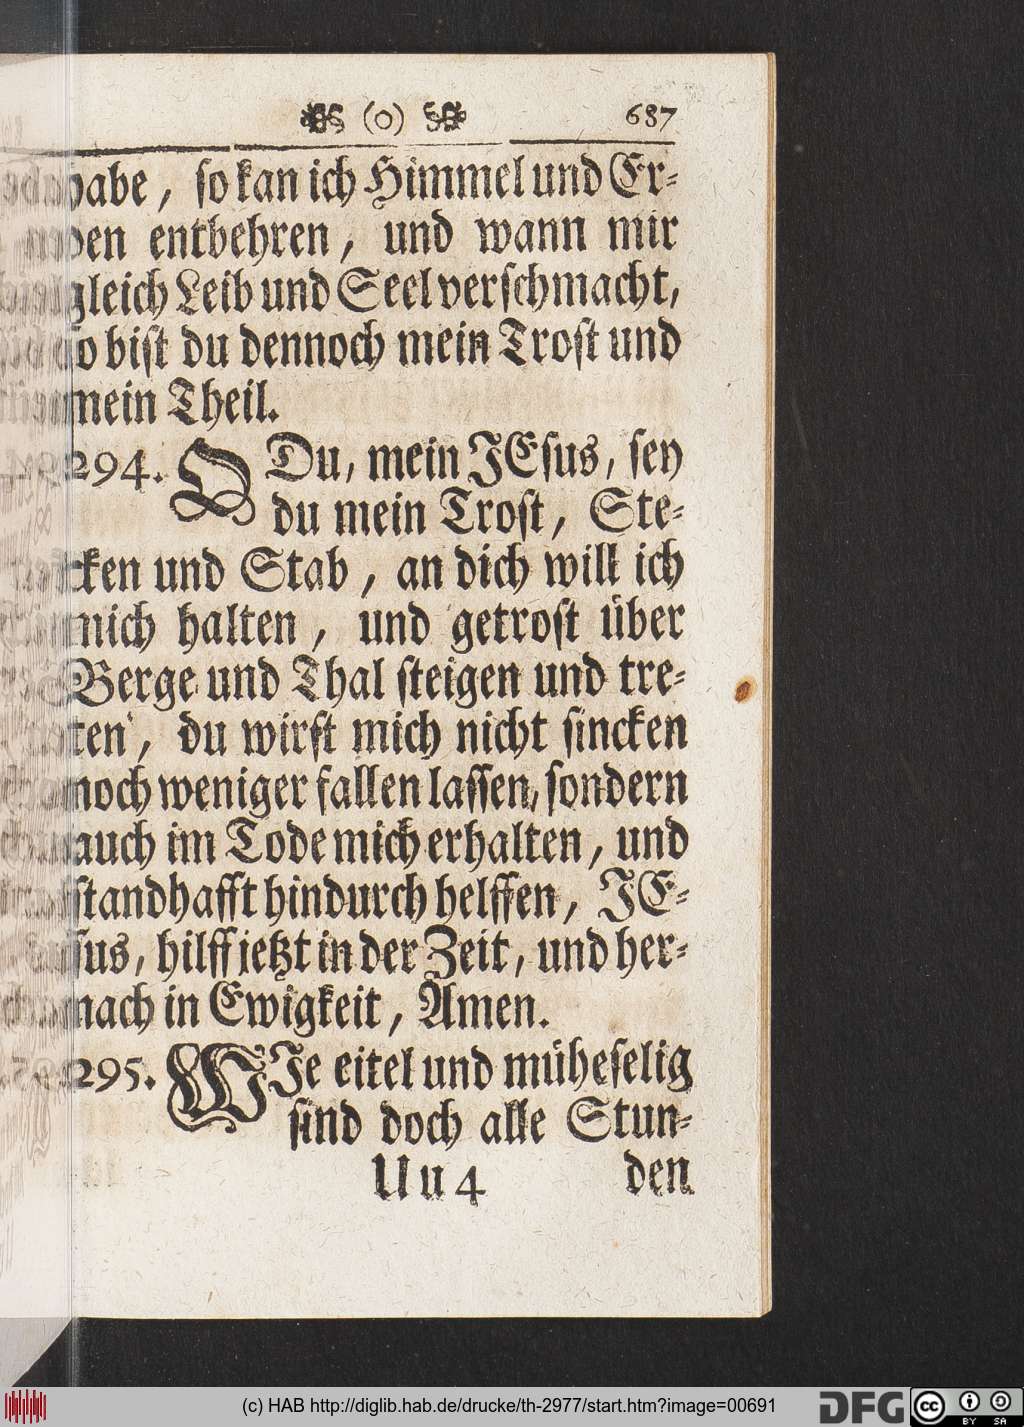 (o) 687
habe, so kan ich Himmel und Er-
den entbehren, und wann mir
gleich Leib und Seel verschmacht,
so bist du dennoch mein Trost und
mein Theil.
294. O Du, mein JEsus, sey
du mein Trost, Ste-
cken und Stab, an dich will ich
mich halten, und getrost über
Berge und Thal steigen und tre-
ten, du wirst mich nicht sincken
noch weniger fallen lassen, sondern
auch im Tode mich erhalten, und
standhafft hindurch helffen, JE-
sus, hilff jetzt in der Zeit, und her-
nach in Ewigkeit, Amen.
295. WJe eitel und müheselig
sind doch alle Stun-
Uu 4 den
(c) HAB http://diglib.hab.de/drucke/th-2977/start.htm?image=00691
DFG
cc BY SA